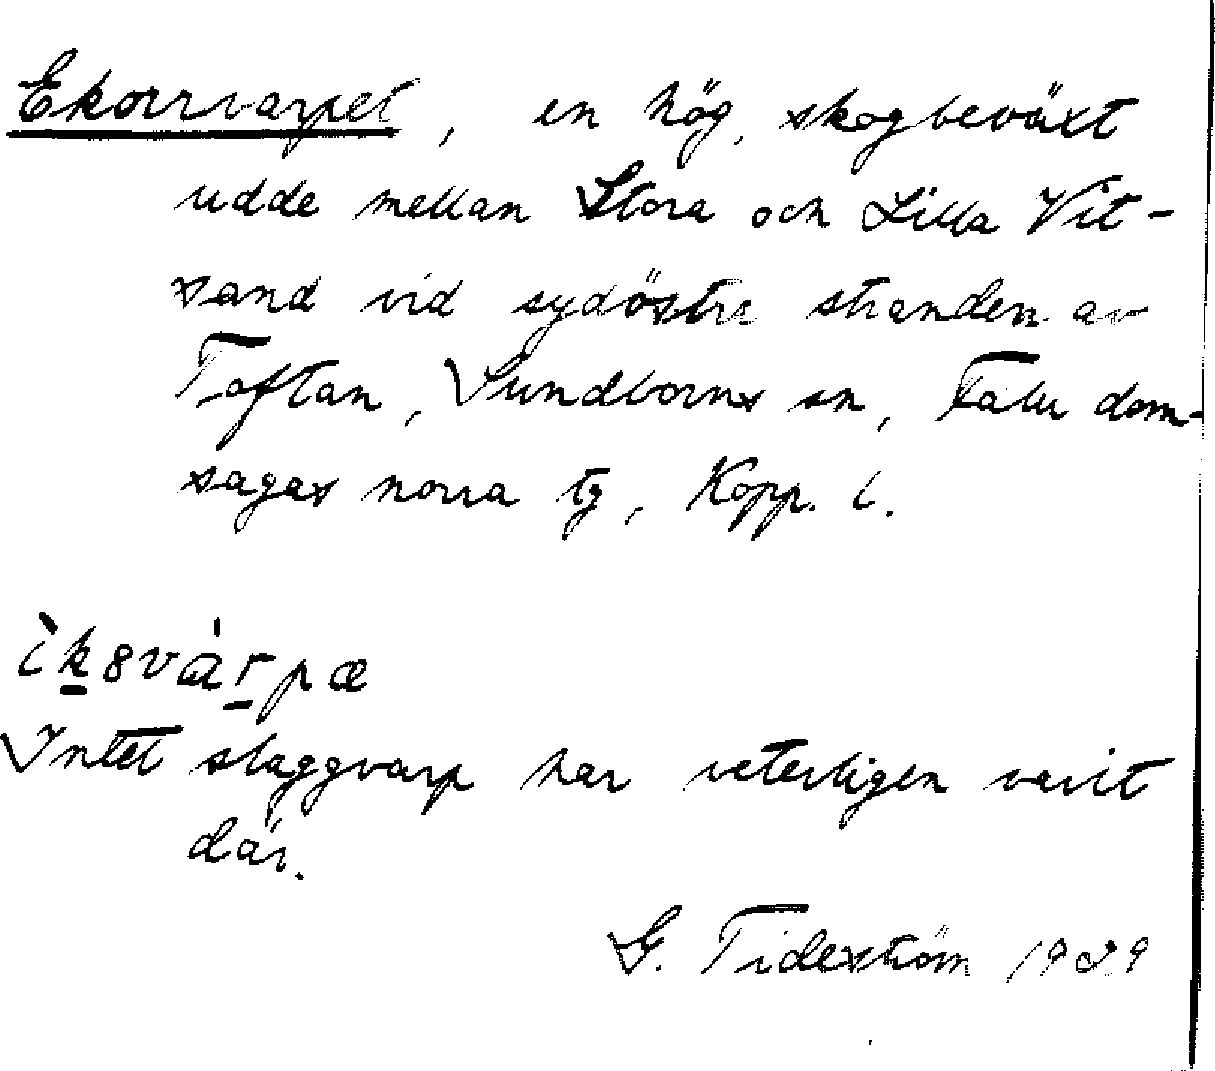 Ekorrvarpet, en hög, skogbeväxt
udde mellan Stora och Lilla Vit-
sand vid sydöstra stranden av
Toftan, Sundborns sn, Falu dom-
sagas norra tg, Kopp. l.
ìk8vàrpæ
Intet slaggvarp har veterligen varit
där.
G. Tideström 1929